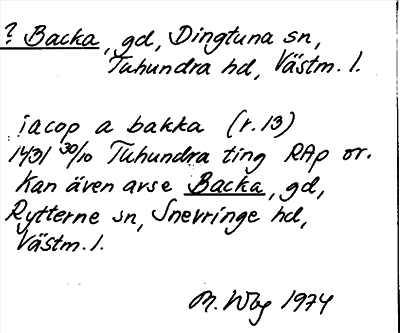 ? Backa, gd, Dingtuna sn,
Tuhundra hd, Västm. l.
iacop a bakka (r. 13)
1431 30/10 Tuhundra ting RAp or.
Kan även avse Backa, gd,
Rytterne sn, Snevringe hd,
Västm. l.
M. Wbg 1974